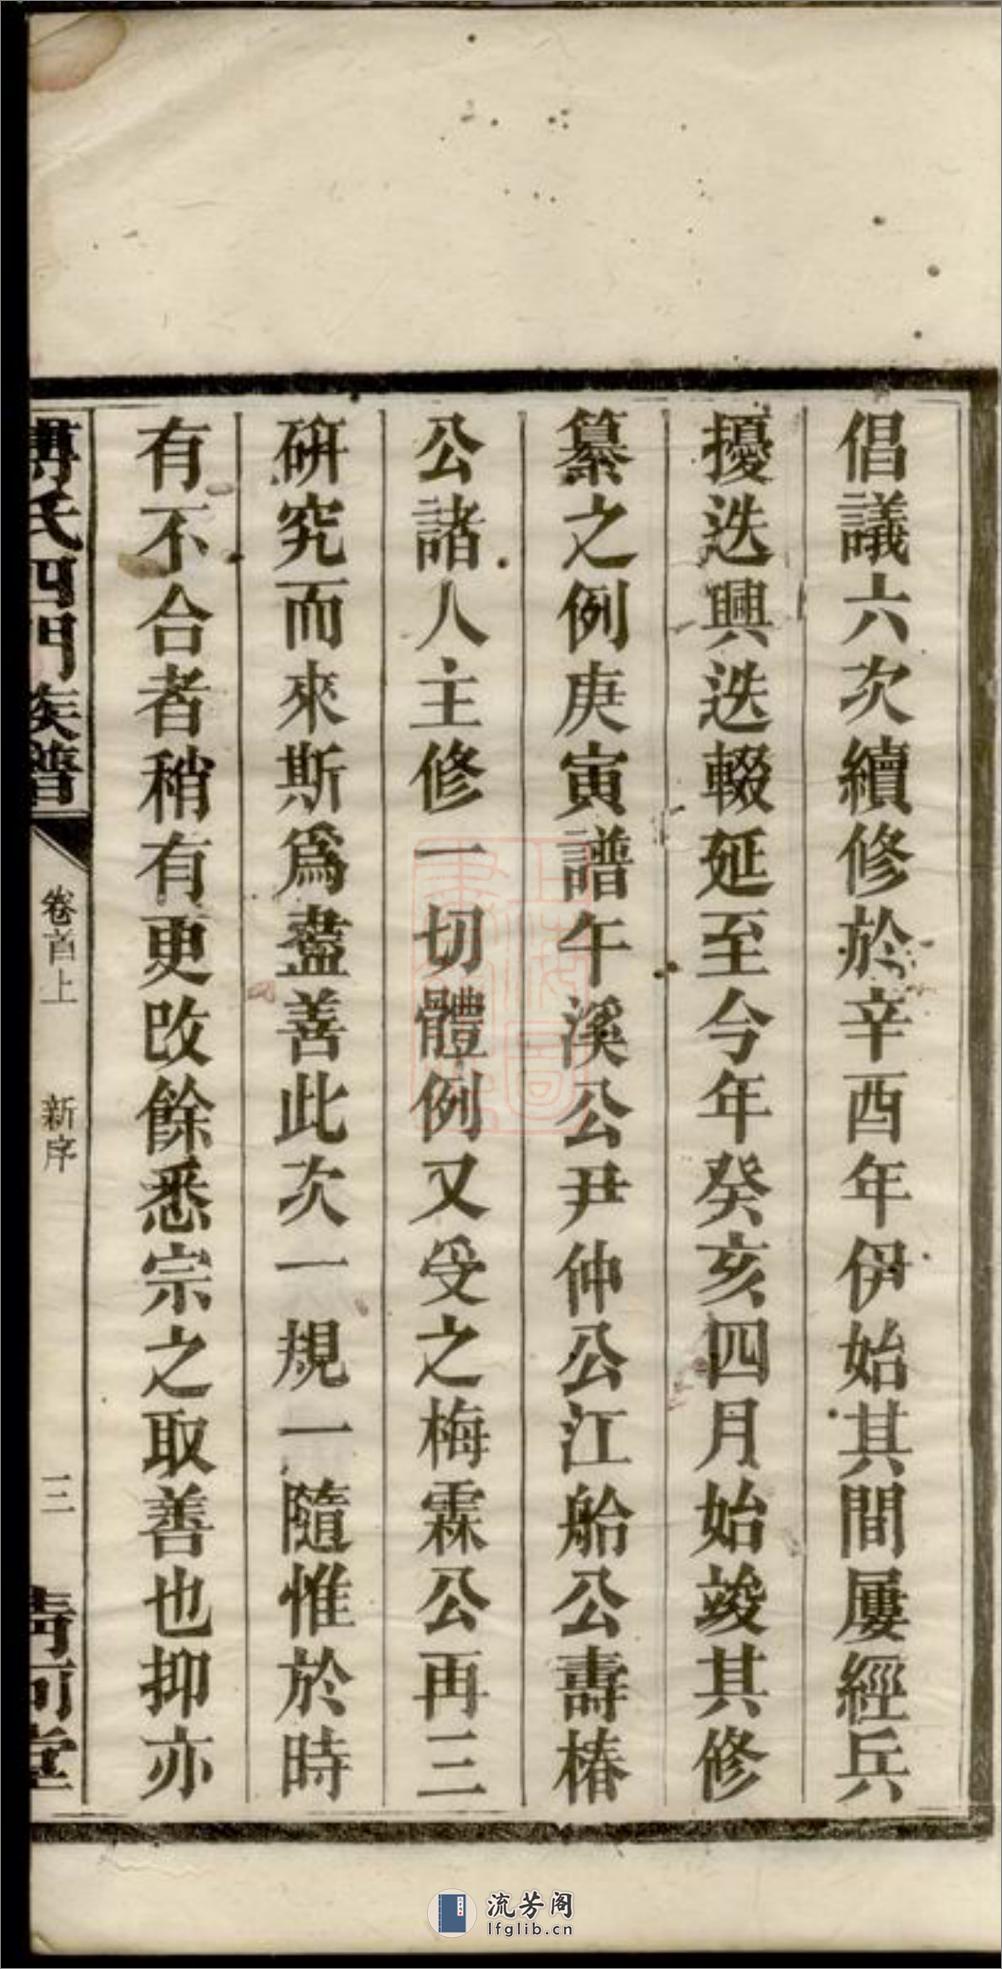 倡議六次續修於辛酉年伊始其間屢經兵
擾迭興迭輟延至今年癸亥四月始竣其修
纂之例庚寅譜午溪公尹仲公江船公壽椿
公諸人主修一切體例又受之梅霖公再三
硏究而來斯爲盡善此次一規一隨惟於時
有不合者稍有更改餘悉宗之取善也抑亦
氏四門族譜
卷首上
新序
三
堂
流芳阁
lfglib.cn